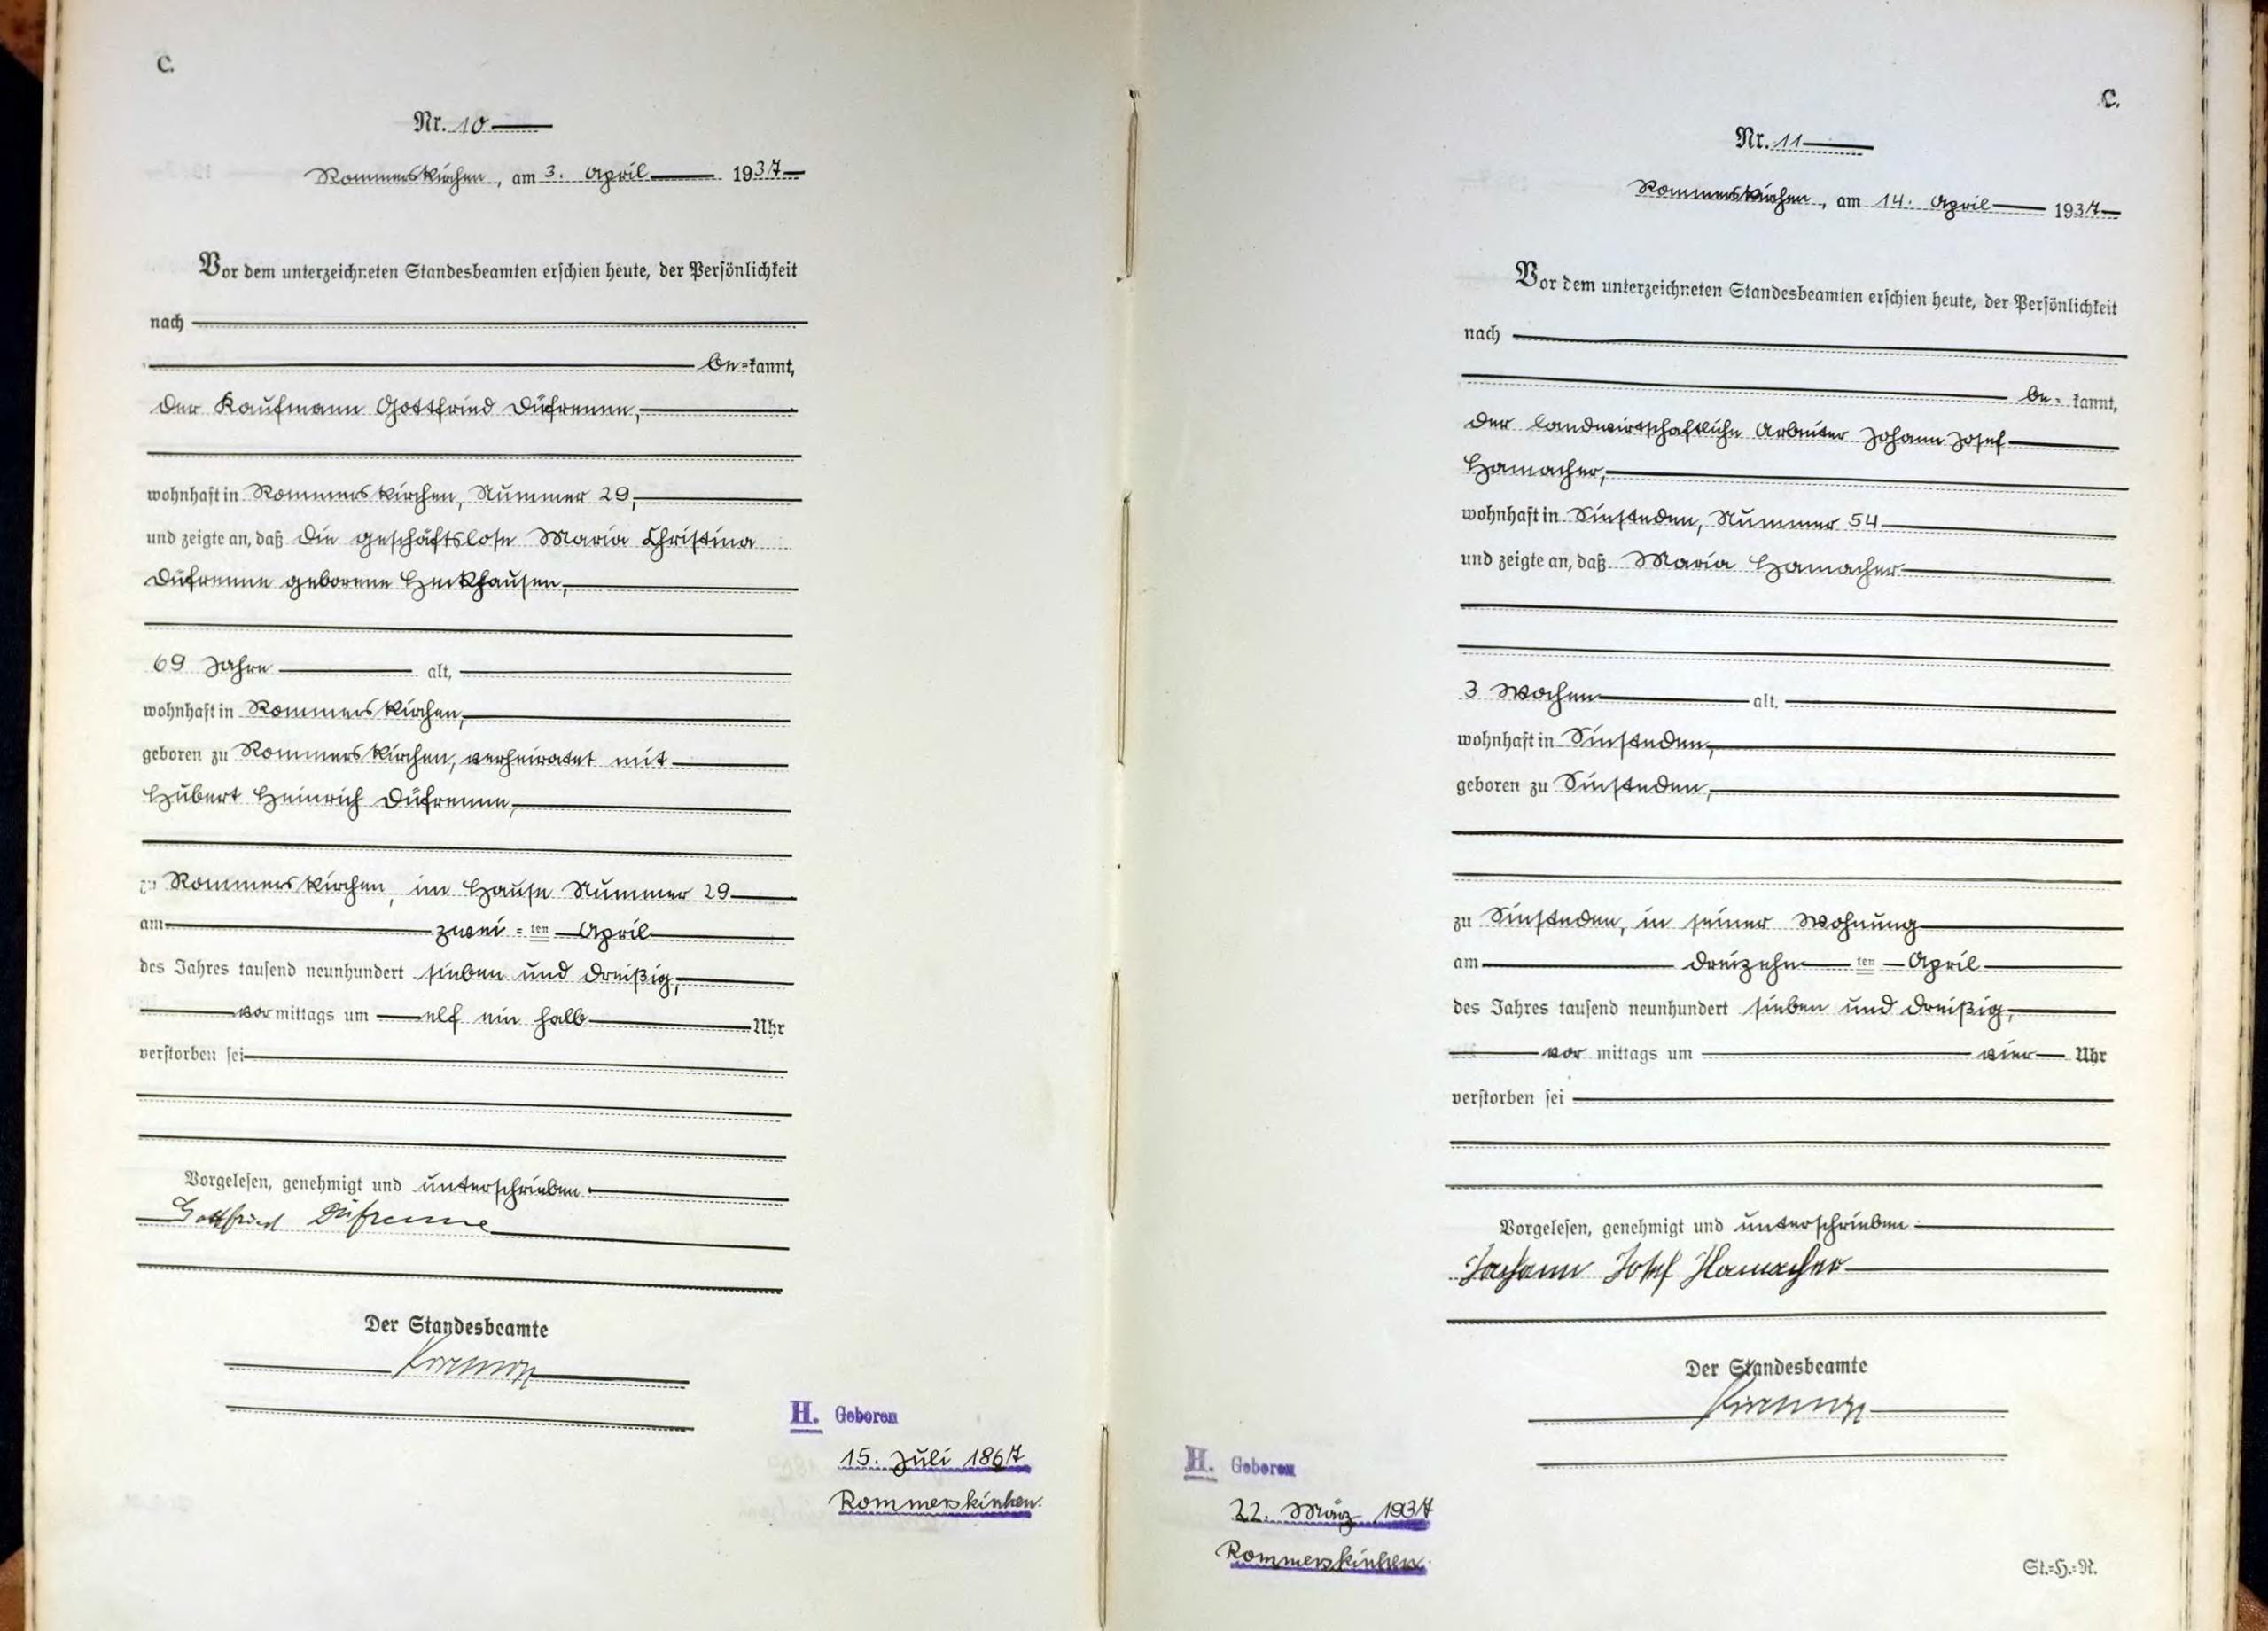 C.
Nr. 10
Rommerskirchen, am 3. April 1937
Vor dem unterzeichneten Standesbeamten erschien heute, der Persönlichkeit
nach
be=kannt,
der Kaufmann Gottfried Düfrenne,
wohnhaft in Rommerskirchen, Nummer 29,
und zeigte an, daß die geschäftslose Maria Christina
Düfrenne geborene Heckhausen,
69 Jahre alt,
wohnhaft in Rommerskirchen,
geboren zu Rommerskirchen, verheiratet mit
Hubert Heinrich Düfrenne,
zu Rommerskirchen, im Hause Nummer 29
am zwei=ten April
des Jahres tausend neunhundert sieben und dreißig,
vormittags um elf ein halb Uhr
verstorben sei
Vorgelesen, genehmigt und unterschrieben
Gottfried Düfrenne
Der Standesbeamte
H. Geboren
15. Juli 1867
Rommerskirchen.
C.
Nr. 11
Rommerskirchen, am 14. April 1937
Vor dem unterzeichneten Standesbeamten erschien heute, der Persönlichkeit
nach
be=kannt,
der landwirtschaftliche Arbeiter Johann Josef
Hamacher,
wohnhaft in Sinsteden, Nummer 54
und zeigte an, daß Maria Hamacher
3 Wochen alt,
wohnhaft in Sinsteden,
geboren zu Sinsteden,
zu Sinsteden, in seiner Wohnung
am dreizehnten April
des Jahres tausend neunhundert sieben und dreißig,
vormittags um vier Uhr
verstorben sei
Vorgelesen, genehmigt und unterschrieben
Johann Josef Hamacher
Der Standesbeamte
H. Geboren
22. März 1937
Rommerskirchen.
St.=H.=N.